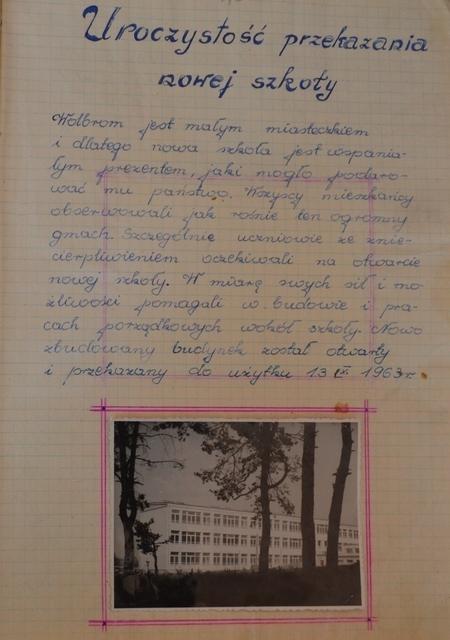 Uroczystość przekazania
nowej szkoły
Wolbrom jest małym miasteczkiem
i dlatego nowa szkoła jest wspania-
łym prezentem, jaki mogło podaro-
wać mu państwo. Wszyscy mieszkańcy
obserwowali jak rośnie ten ogromny
gmach. Szczególnie uczniowie ze znie-
cierpliwieniem oczekiwali na otwarcie
nowej szkoły. W miarę swych sił i mo-
żliwości pomagali w budowie i pra-
cach porządkowych wokół szkoły. Nowo
zbudowany budynek został otwarty
i przekazany do użytku 13 1963r.